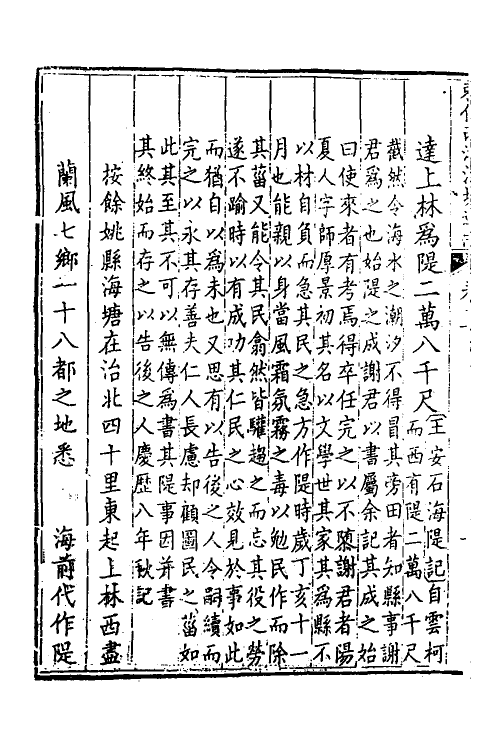 達上林爲隄二萬八千尺(王安石海隄記自雲柯
而西有隄二萬八千尺
截然令海水之潮汐不得冒其旁田者知縣事謝
君爲之也始隄之成謝君以書屬余記其成之始
曰使來者有考焉得卒任完之以不隳謝君者陽
夏人字師厚景初其名以文學世其家其爲縣不
以材自負而急其民之急方作隄時歲丁亥十一
月也能親以身當風霜氛霧之毒以勉民作而除
其菑又能令其民翕然皆驩趨之而忘其役之勞
遂不踰時以有成功其仁民之心效見於事如此
而猶自以爲未也又思有以告後之人令嗣續而
完之以永其存善夫仁人長慮却顧圖民之菑如
此其至其不可以無傳爲書其隄事因并書
其終始而存之以告後之人慶歷八年秋記
按餘姚縣海塘在治北四十里東起上林西盡
蘭風七鄉一十八都之地悉 海前代作隄